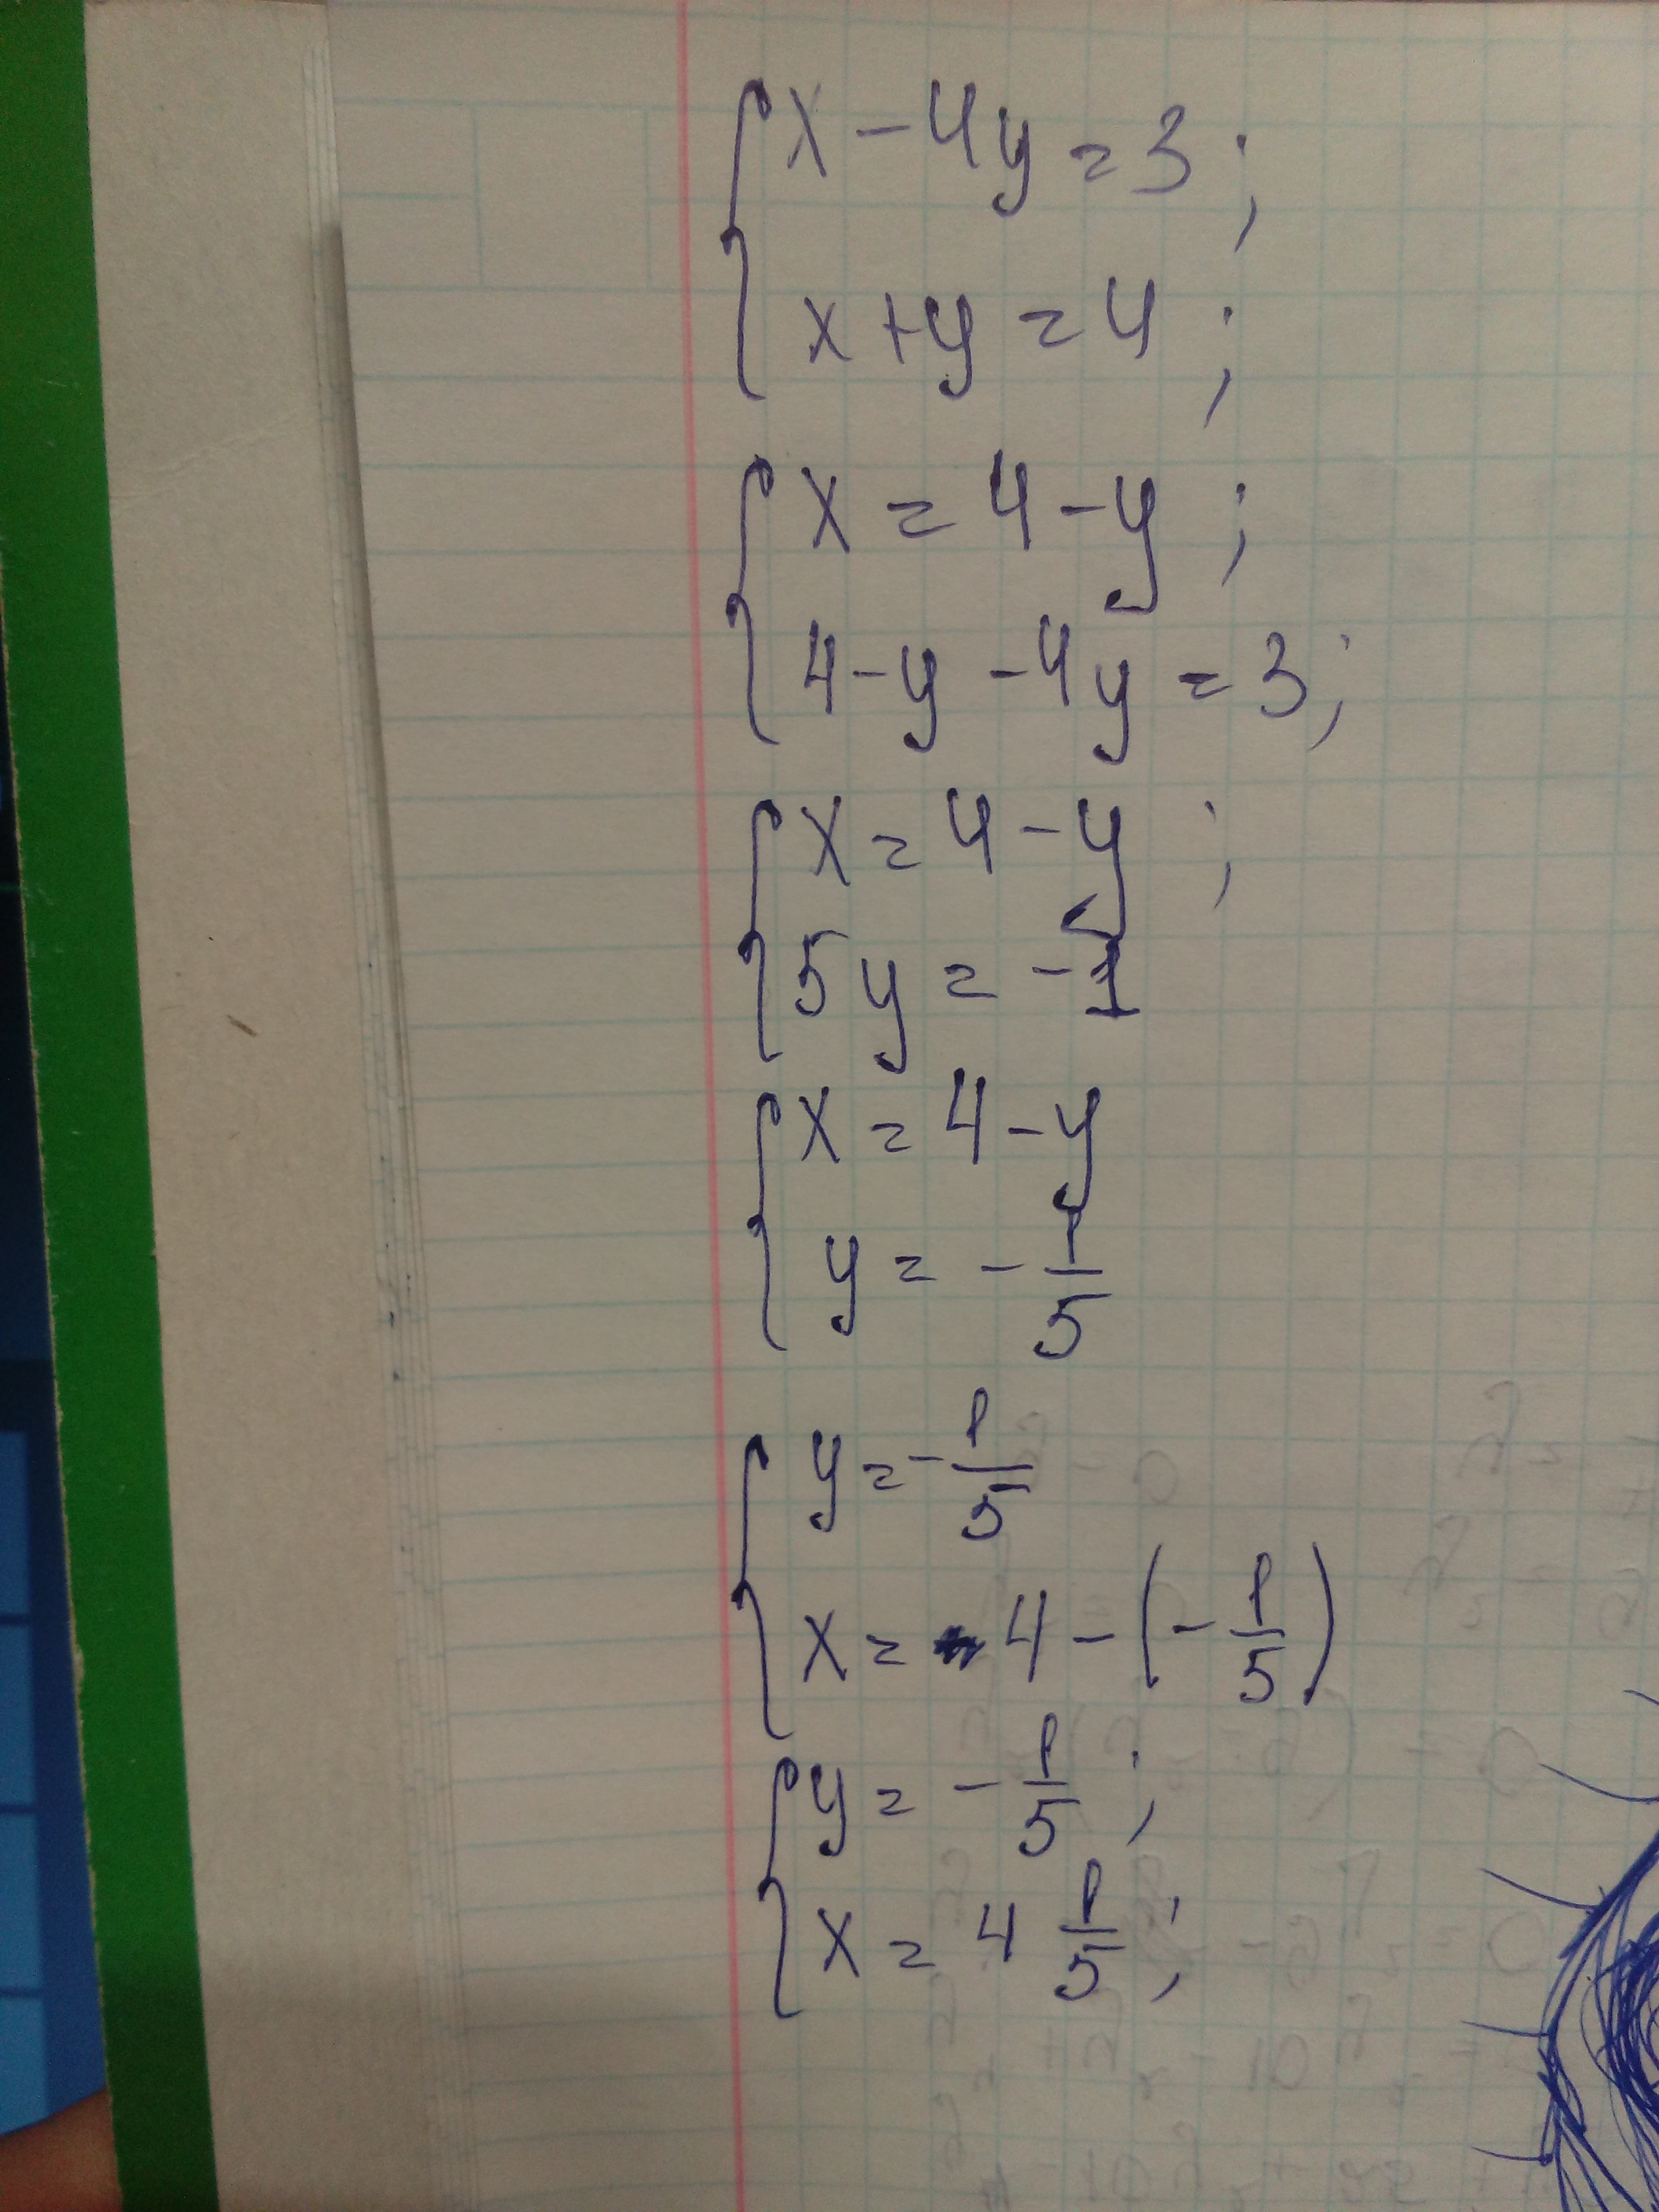 x - 4y = 3;
x + y = 4;
x = 4 - y;
4 - y - 4y = 3;
x = 4 - y;
5y = -1
x = 4 - y
y = - 1/5
y = - 1/5
x = 4 - (- 1/5)
y = - 1/5;
x = 4 1/5;